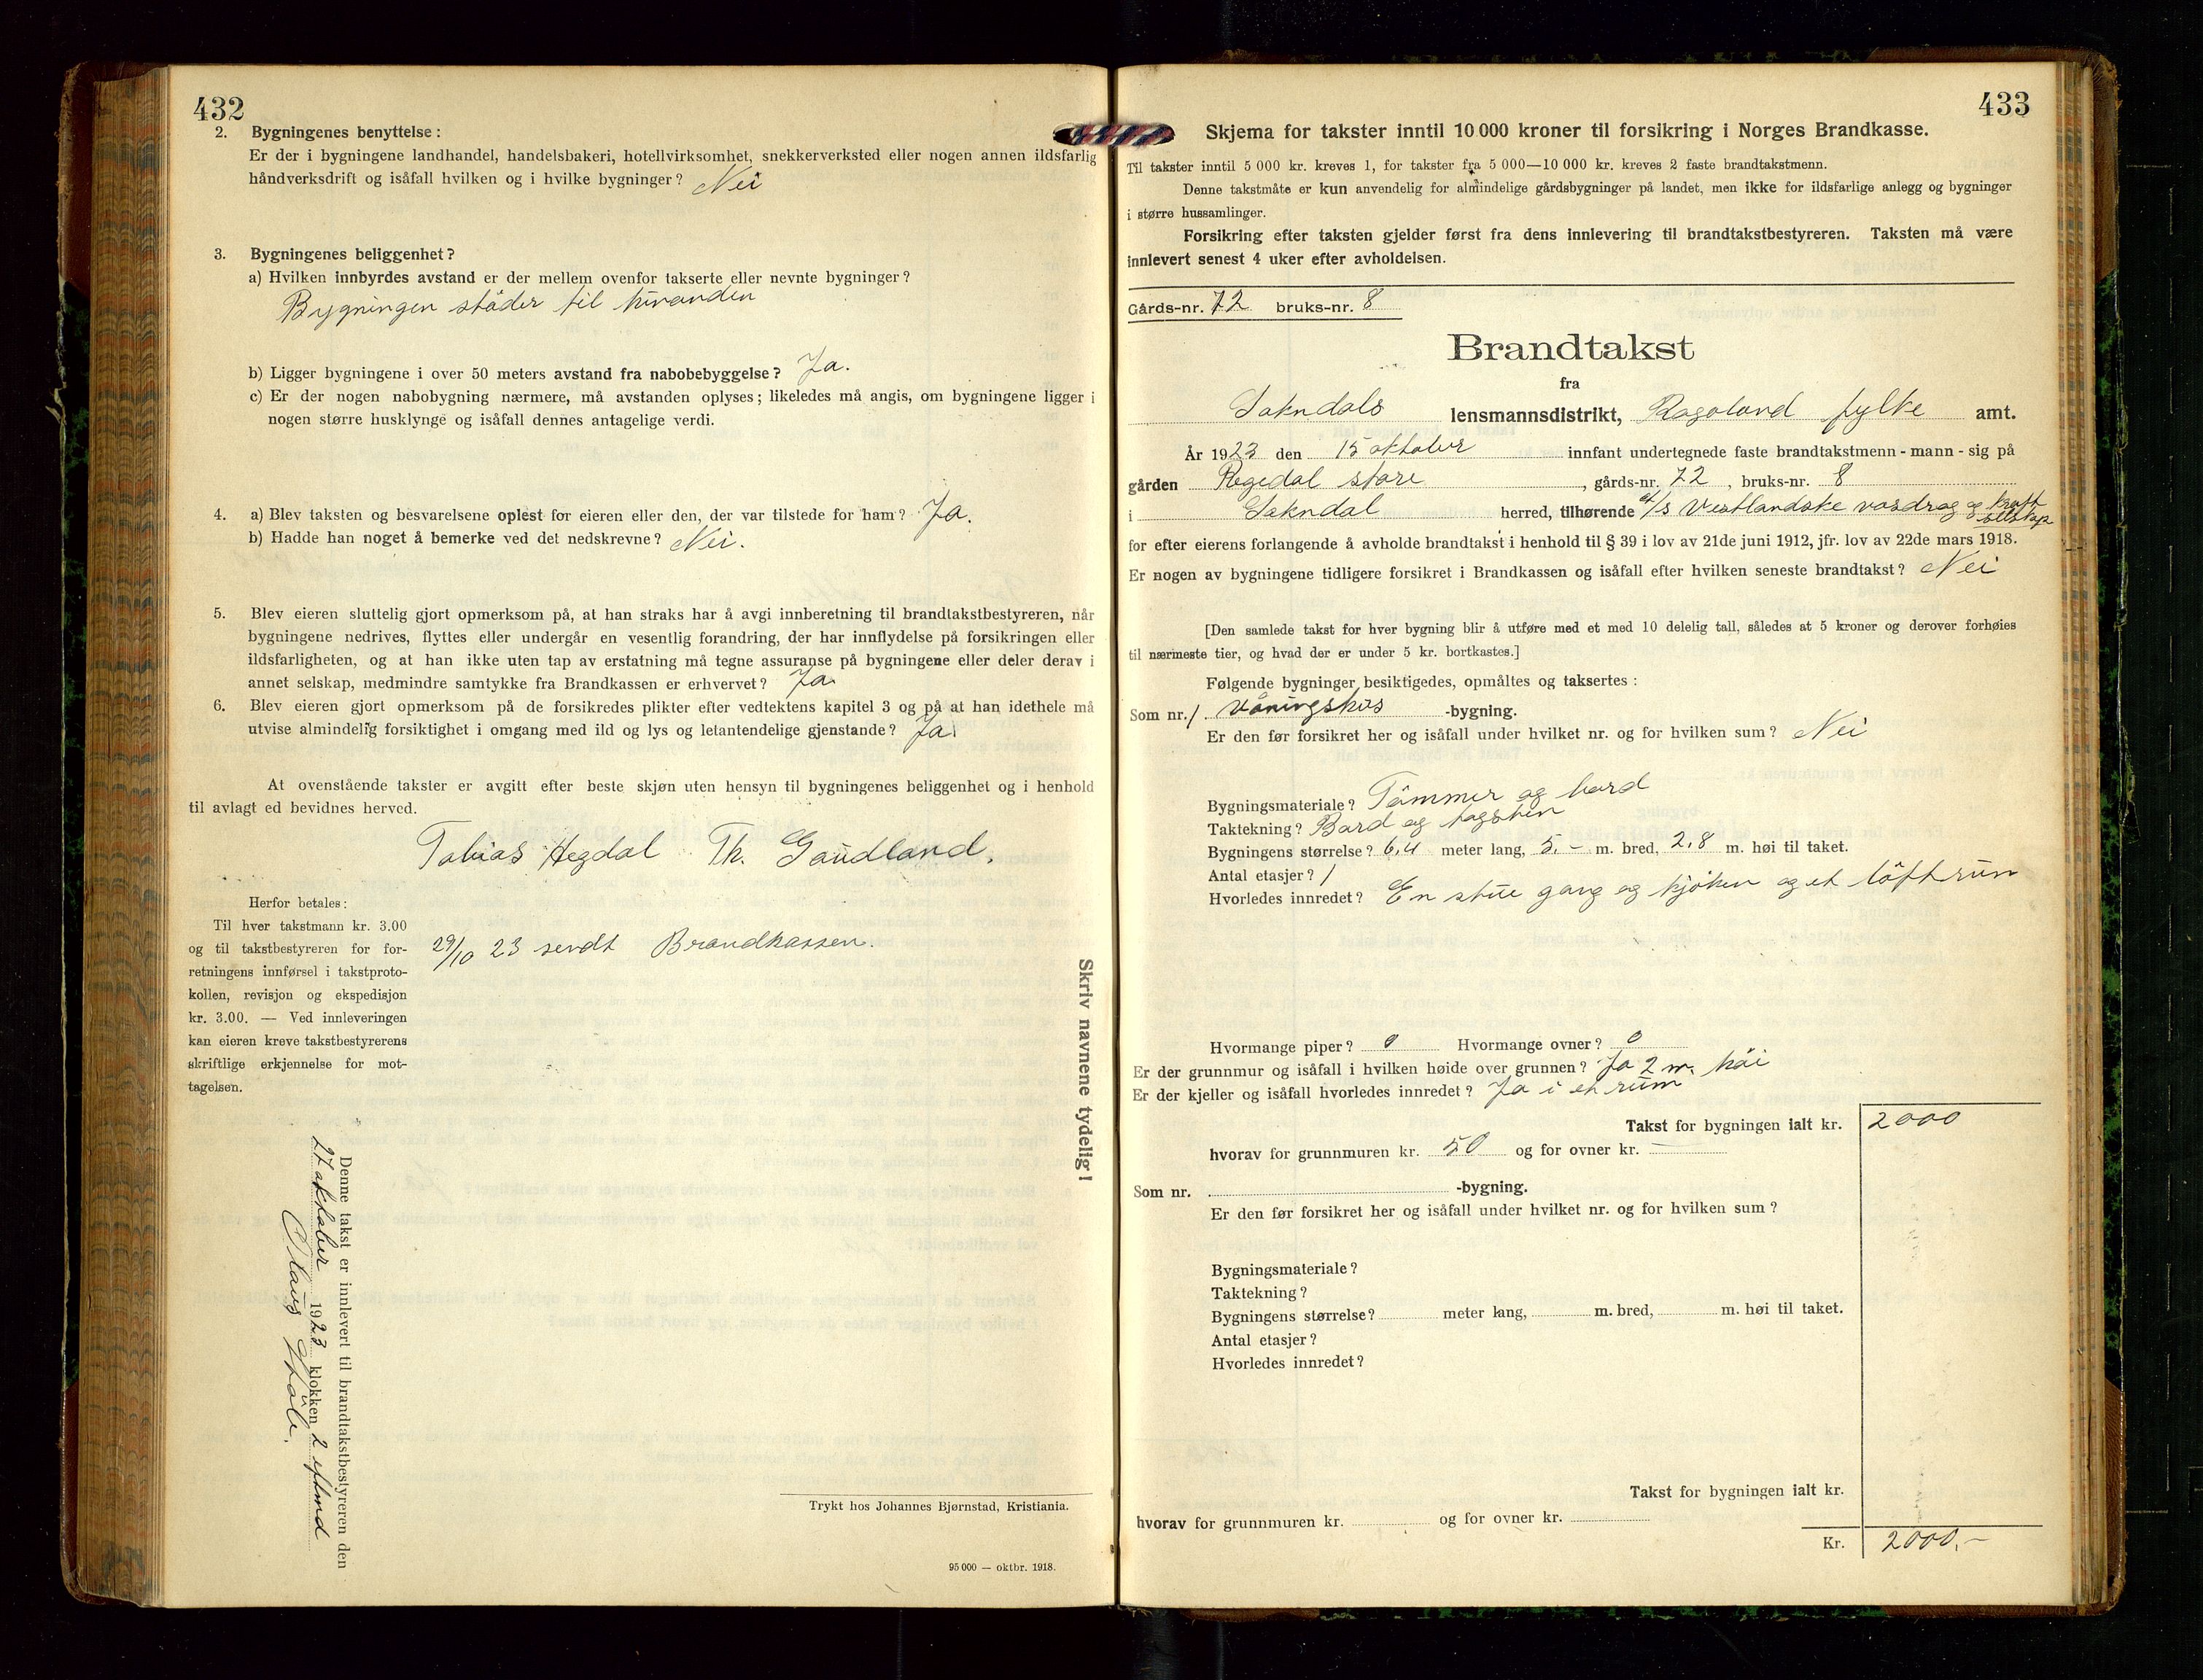 432
2. Bygningenes benyttelse:
Er der i bygningene landhandel, handelsbakeri, hotellvirksomhet, snekkerverksted eller nogen annen ildsfarlig
håndverksdrift og isåfall hvilken og i hvilke bygninger? Nei
3. Bygningenes beliggenhet?
a) Hvilken innbyrdes avstand er der mellem ovenfor takserte eller nevnte bygninger?
Bygningen støder til
b) Ligger bygningene i over 50 meters avstand fra nabobebyggelse? Ja.
c) Er der nogen nabobygning nærmere, må avstanden oplyses; likeledes må angis, om bygningene ligger i
nogen større husklynge og isåfall dennes antagelige verdi.
4. a) Blev taksten og besvarelsene oplest for eieren eller den, der var tilstede for ham? Ja.
b) Hadde han noget å bemerke ved det nedskrevne? Nei.
5. Blev eieren sluttelig gjort opmerksom på, at han straks har å avgi innberetning til brandtakstbestyreren, når
bygningene nedrives, flyttes eller undergår en vesentlig forandring, der har innflydelse på forsikringen eller
ildsfarligheten, og at han ikke uten tap av erstatning må tegne assuranse på bygningene eller deler derav i
annet selskap, medmindre samtykke fra Brandkassen er erhvervet? Ja
6. Blev eieren gjort opmerksom på de forsikredes plikter efter vedtektens kapitel 3 og på at han idethele må
utvise almindelig forsiktighet i omgang med ild og lys og letantendelige gjenstande? Ja
At ovenstående takster er avgitt efter beste skjøn uten hensyn til bygningenes beliggenhet og i henhold
til avlagt ed bevidnes herved.
Tobias Hegdal Th. Gaudland.
Herfor betales:
Til hver takstmann kr. 3.00
og til takstbestyreren for for-
retningens innførsel i takstproto-
kollen, revisjon og ekspedisjon
kr. 3.00. — Ved innleveringen
kan eieren kreve takstbestyrerens
skriftlige erkjennelse for mot-
tagelsen.
29/10 23 sendt Brandkassen.
Skriv navnene tydelig!
Denne takst er innlevert til brandtakstbestyreren den
27 oktober 1923 klokken 2 eftmd
Olaus
Trykt hos Johannes Bjørnstad, Kristiania.
95 000 — oktbr. 1918.
433
Skjema for takster inntil 10 000 kroner til forsikring i Norges Brandkasse.
Til takster inntil 5 000 kr. kreves 1, for takster fra 5 000—10 000 kr. kreves 2 faste brandtakstmenn.
Denne takstmåte er kun anvendelig for almindelige gårdsbygninger på landet, men ikke for ildsfarlige anlegg og bygninger
i større hussamlinger.
Forsikring efter taksten gjelder først fra dens innlevering til brandtakstbestyreren. Taksten må være
innlevert senest 4 uker efter avholdelsen.
Gårds-nr. 72 bruks-nr. 8
Brandtakst
fra
Sokndals lensmannsdistrikt, Rogaland fylke amt.
År 1923 den 15 oktober innfant undertegnede faste brandtakstmenn - mann - sig på
gården Regedal store, gårds-nr. 72, bruks-nr. 8
i Sokndal herred, tilhørende A/S Vestlandske vasdrag og kraft selskap
for efter eierens forlangende å avholde brandtakst i henhold til § 39 i lov av 21de juni 1912, jfr. lov av 22de mars 1918.
Er nogen av bygningene tidligere forsikret i Brandkassen og isåfall efter hvilken seneste brandtakst? Nei
[Den samlede takst for hver bygning blir å utføre med et med 10 delelig tall, således at 5 kroner og derover forhøies
til nærmeste tier, og hvad der er under 5 kr. bortkastes.]
Følgende bygninger besiktigedes, opmåltes og taksertes:
Som nr. 1 Våningshus -bygning.
Er den før forsikret her og isåfall under hvilket nr. og for hvilken sum? Nei
Bygningsmateriale? Tömmer og bord
Taktekning? Bord og tagsten
Bygningens størrelse? 6,4 meter lang, 5,- m. bred, 2,8 m. høi til taket.
Antal etasjer? 1
Hvorledes innredet? En stue gang og kjøken og et löftrum
Hvormange piper? 0 Hvormange ovner? 0
Er der grunnmur og isåfall i hvilken høide over grunnen? Ja 2 m. höi
Er der kjeller og isåfall hvorledes innredet? Ja i et rum
Takst for bygningen ialt kr. 2000
hvorav for grunnmuren kr. 50 og for ovner kr. —
Som nr. -bygning.
Er den før forsikret her og isåfall under hvilket nr. og for hvilken sum?
Bygningsmateriale?
Taktekning?
Bygningens størrelse? meter lang, m. bred, m. høi til taket.
Antal etasjer?
Hvorledes innredet?
Takst for bygningen ialt kr.
hvorav for grunnmuren kr. og for ovner kr.
Kr. 2000,-